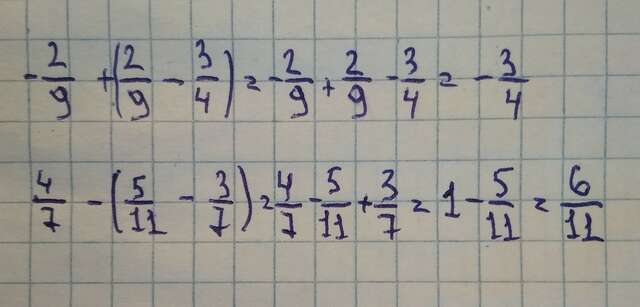 -2/9 + (2/9 - 3/4) = -2/9 + 2/9 - 3/4 = -3/4
4/7 - (5/11 - 3/7) = 4/7 - 5/11 + 3/7 = 1 - 5/11 = 6/11